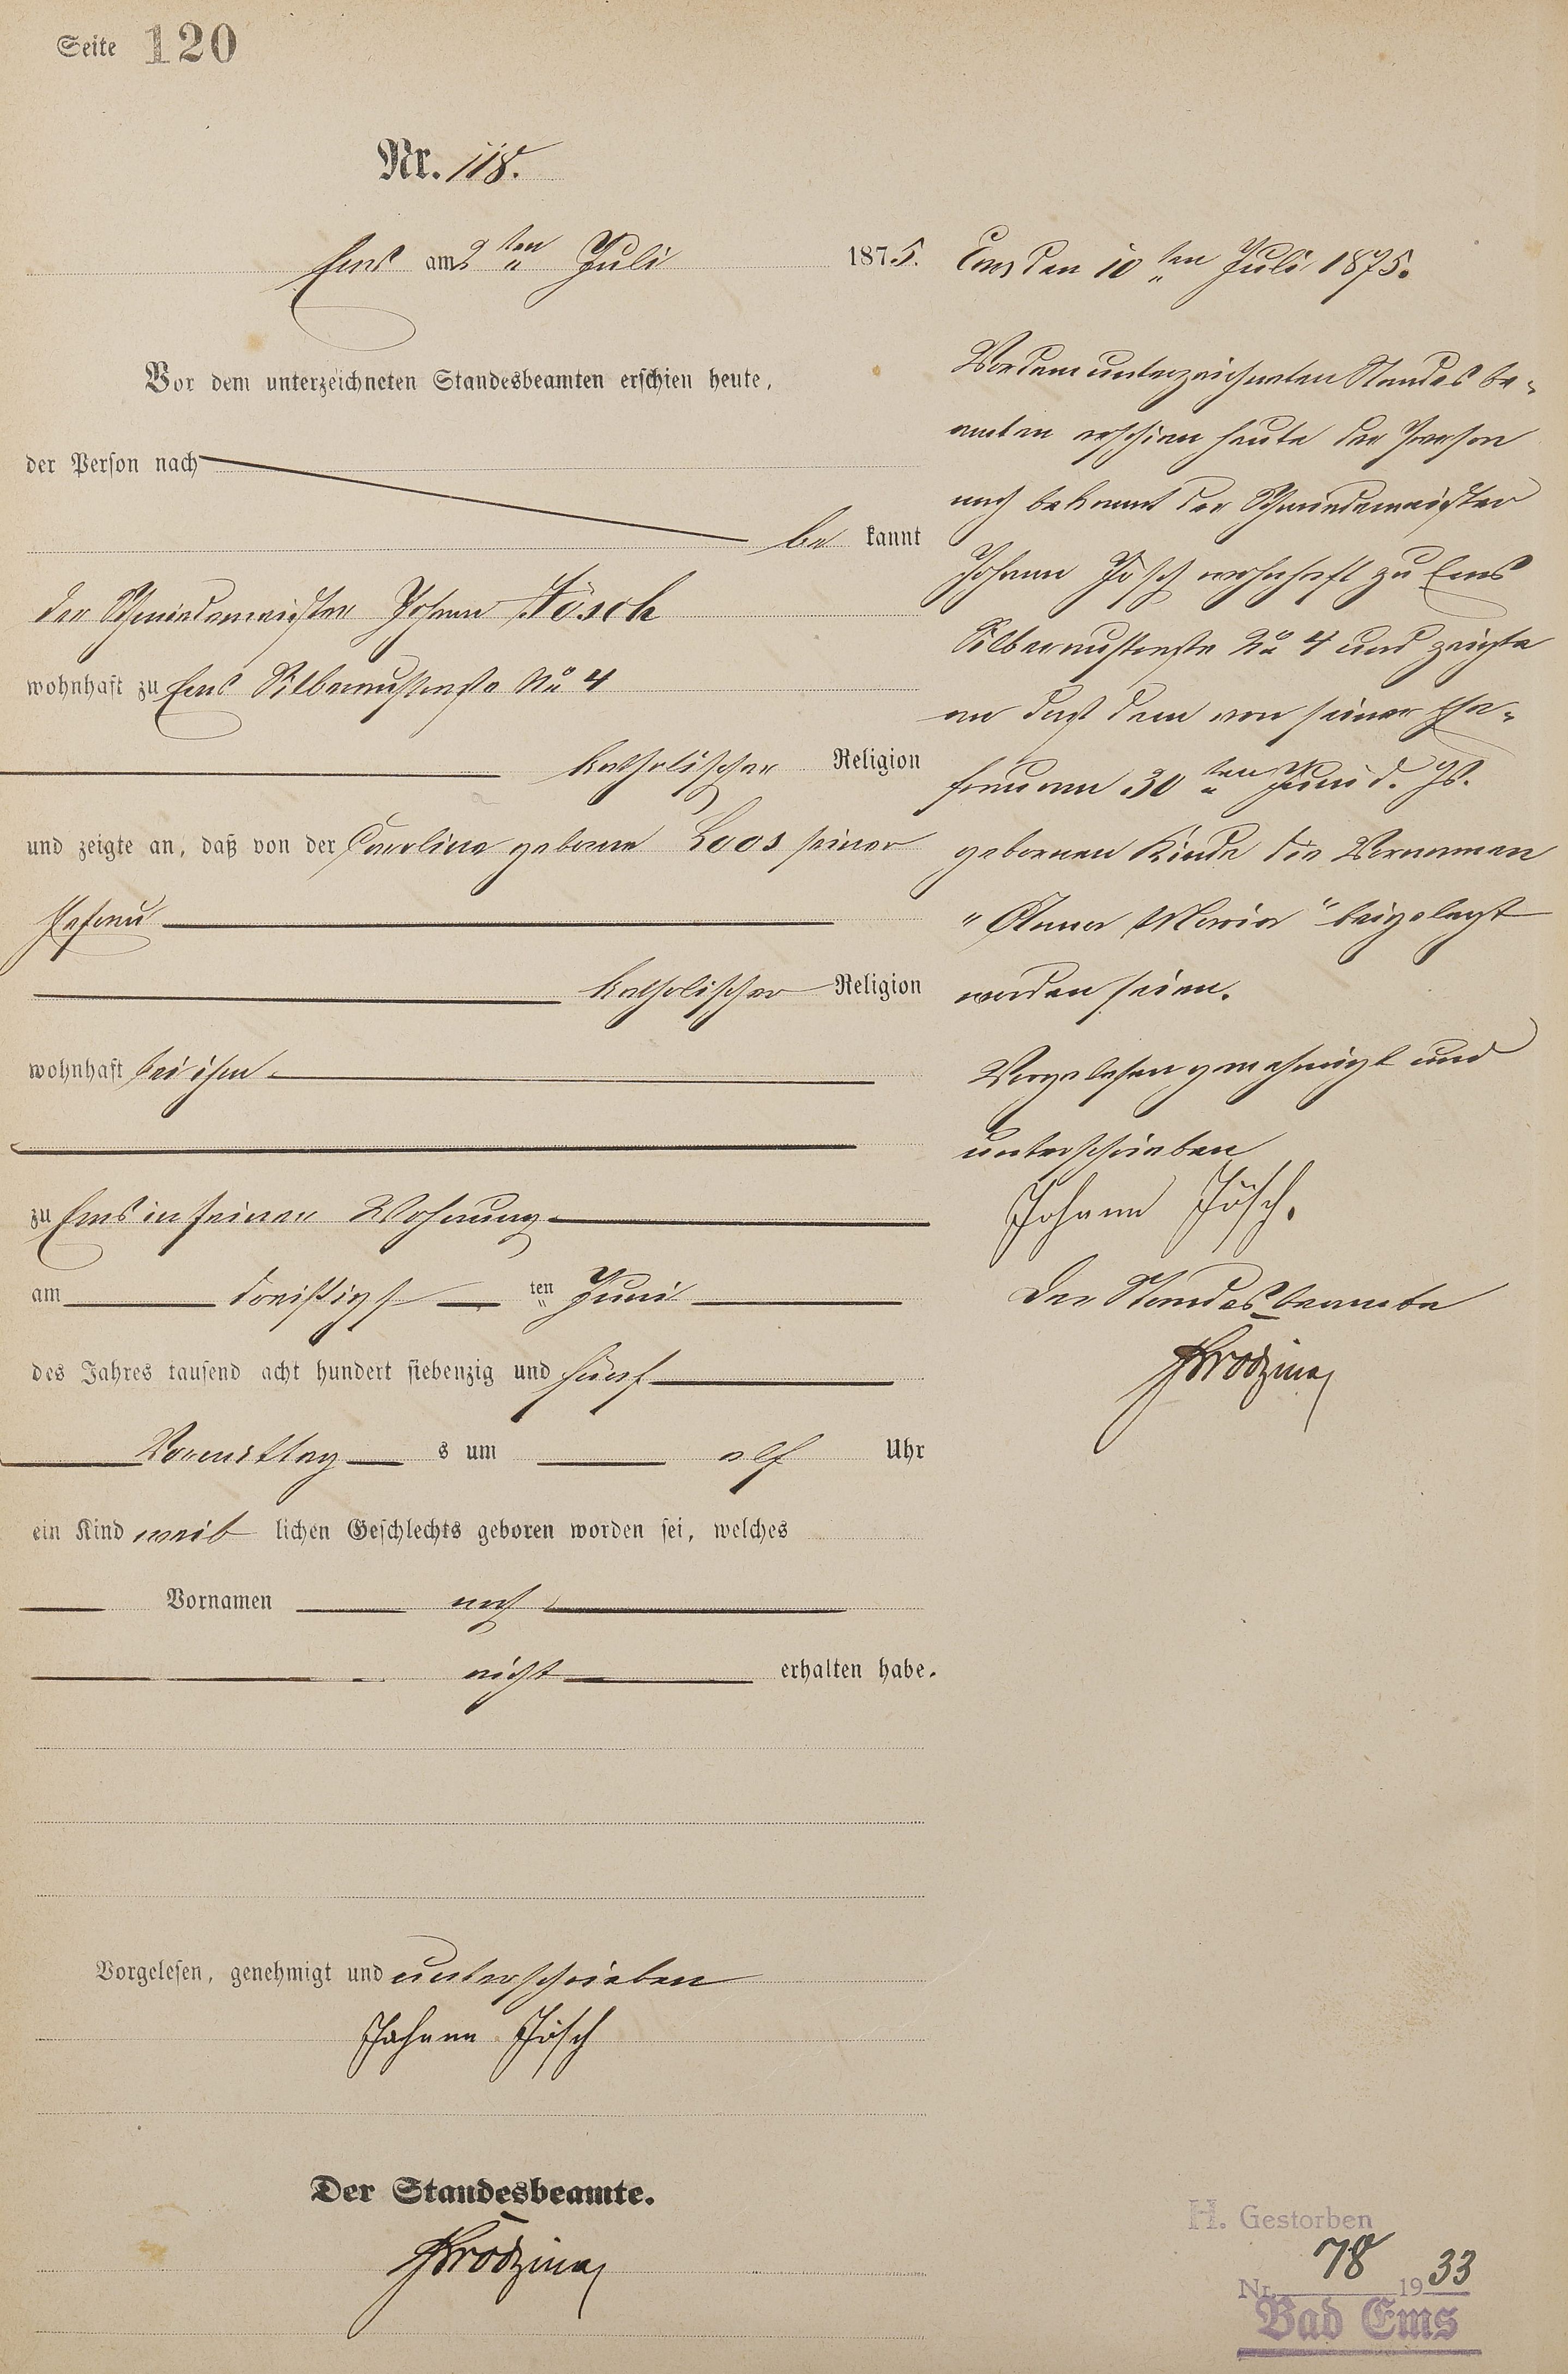 Seite 120
Nr. 118.
Ems am 2 ten Juli 1875.
Vor dem unterzeichneten Standesbeamten erschien heute,
der Person nach
be kannt
der Schmiedemeister Johann Jösch
wohnhaft zu Ems Silberaustraße No 4
katholischer Religion
und zeigte an, daß von der Caroline geborne Loos seiner
Ehefrau
katholischer Religion
wohnhaft bei ihm
zu Ems in seiner Wohnung
am dreißigs ten Juni
des Jahres tausend acht hundert siebenzig und fünf
Vormittag s um elf Uhr
ein Kind weib lichen Geschlechts geboren worden sei, welches
Vornamen noch
nicht erhalten habe.
Vorgelesen, genehmigt und unterschrieben
Johann Jösch
Der Standesbeamte.
Ems den 10 ten Juli 1875.
Vor dem unterzeichneten Standesbe-
amten erschien heute der Person
nach bekannt der Schmiedemeister
Johann Jösch wohnhaft zu Ems
Silberaustraße No 4 und zeigte
an daß dem von seiner Ehe-
frau am 30 ten Juni d. Js.
gebornen Kinde die Vornamen
"Anna Maria" beigelegt
worden seien.
Vorgelesen genehmigt und
unterschrieben
Johann Jösch.
Der Standesbeamte
H. Gestorben
Nr. 78 1933
Bad Ems